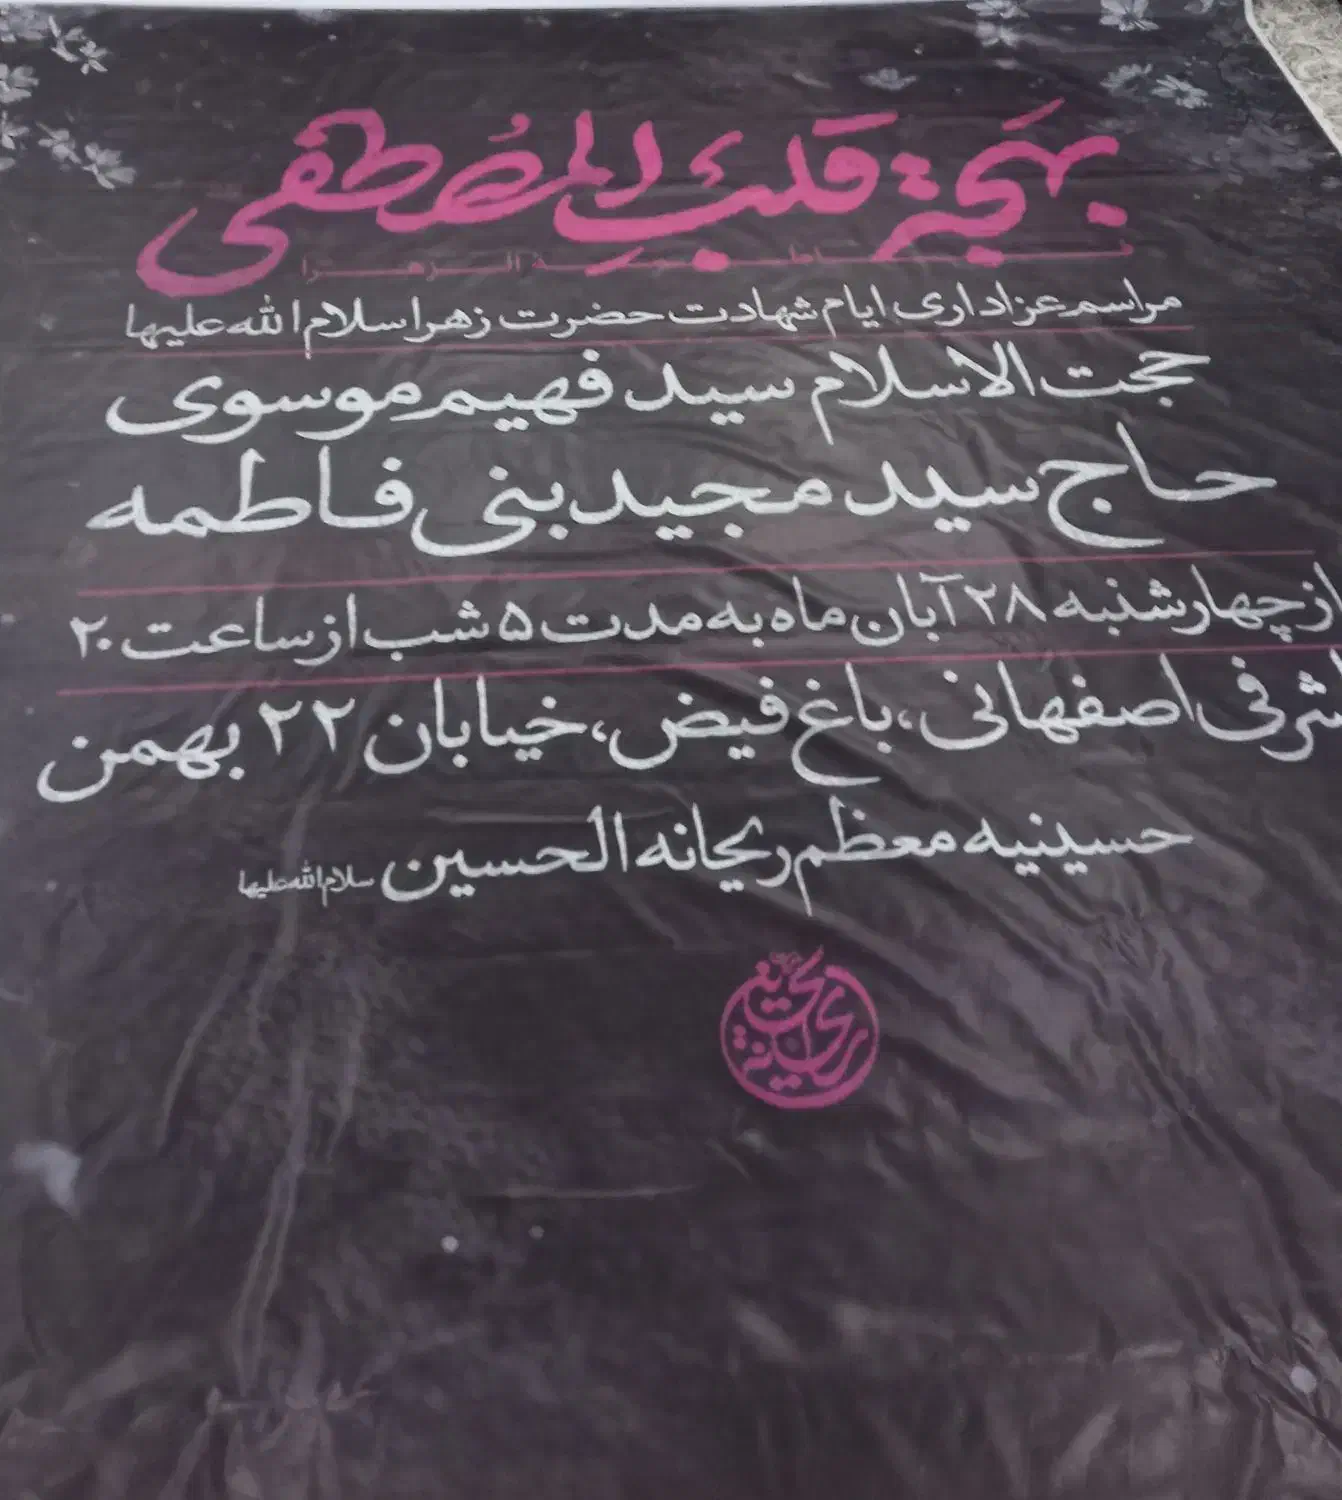 بهجة قلب المصطفی
فاطمة الزهرا
مراسم عزاداری ایام شهادت حضرت زهرا سلام الله علیها
حجت الاسلام سید فهیم موسوی
حاج سید مجید بنی فاطمه
از چهارشنبه ۲۸ آبان ماه به مدت ۵ شب از ساعت ۲۰
اشرفی اصفهانی، باغ فیض، خیابان ۲۲ بهمن
حسینیه معظم ریحانه الحسین سلام الله علیها